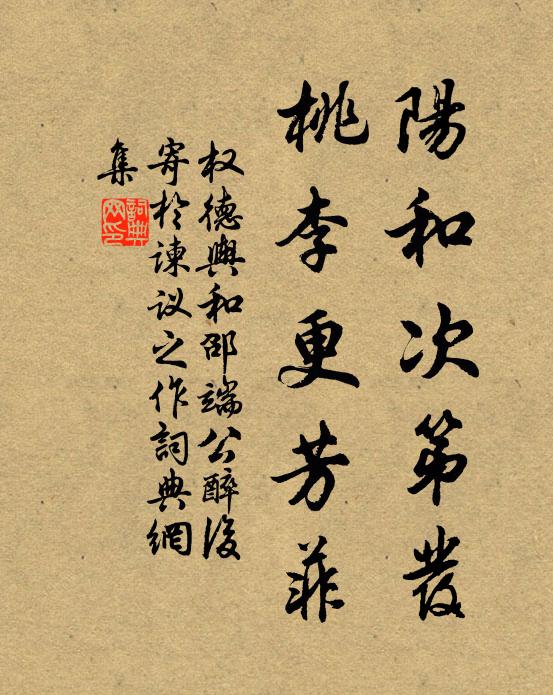 陽和次第發
桃李更芳菲
权德輿和邵端公醉後
寄於諫议之作詞典網
集
詞典
网印